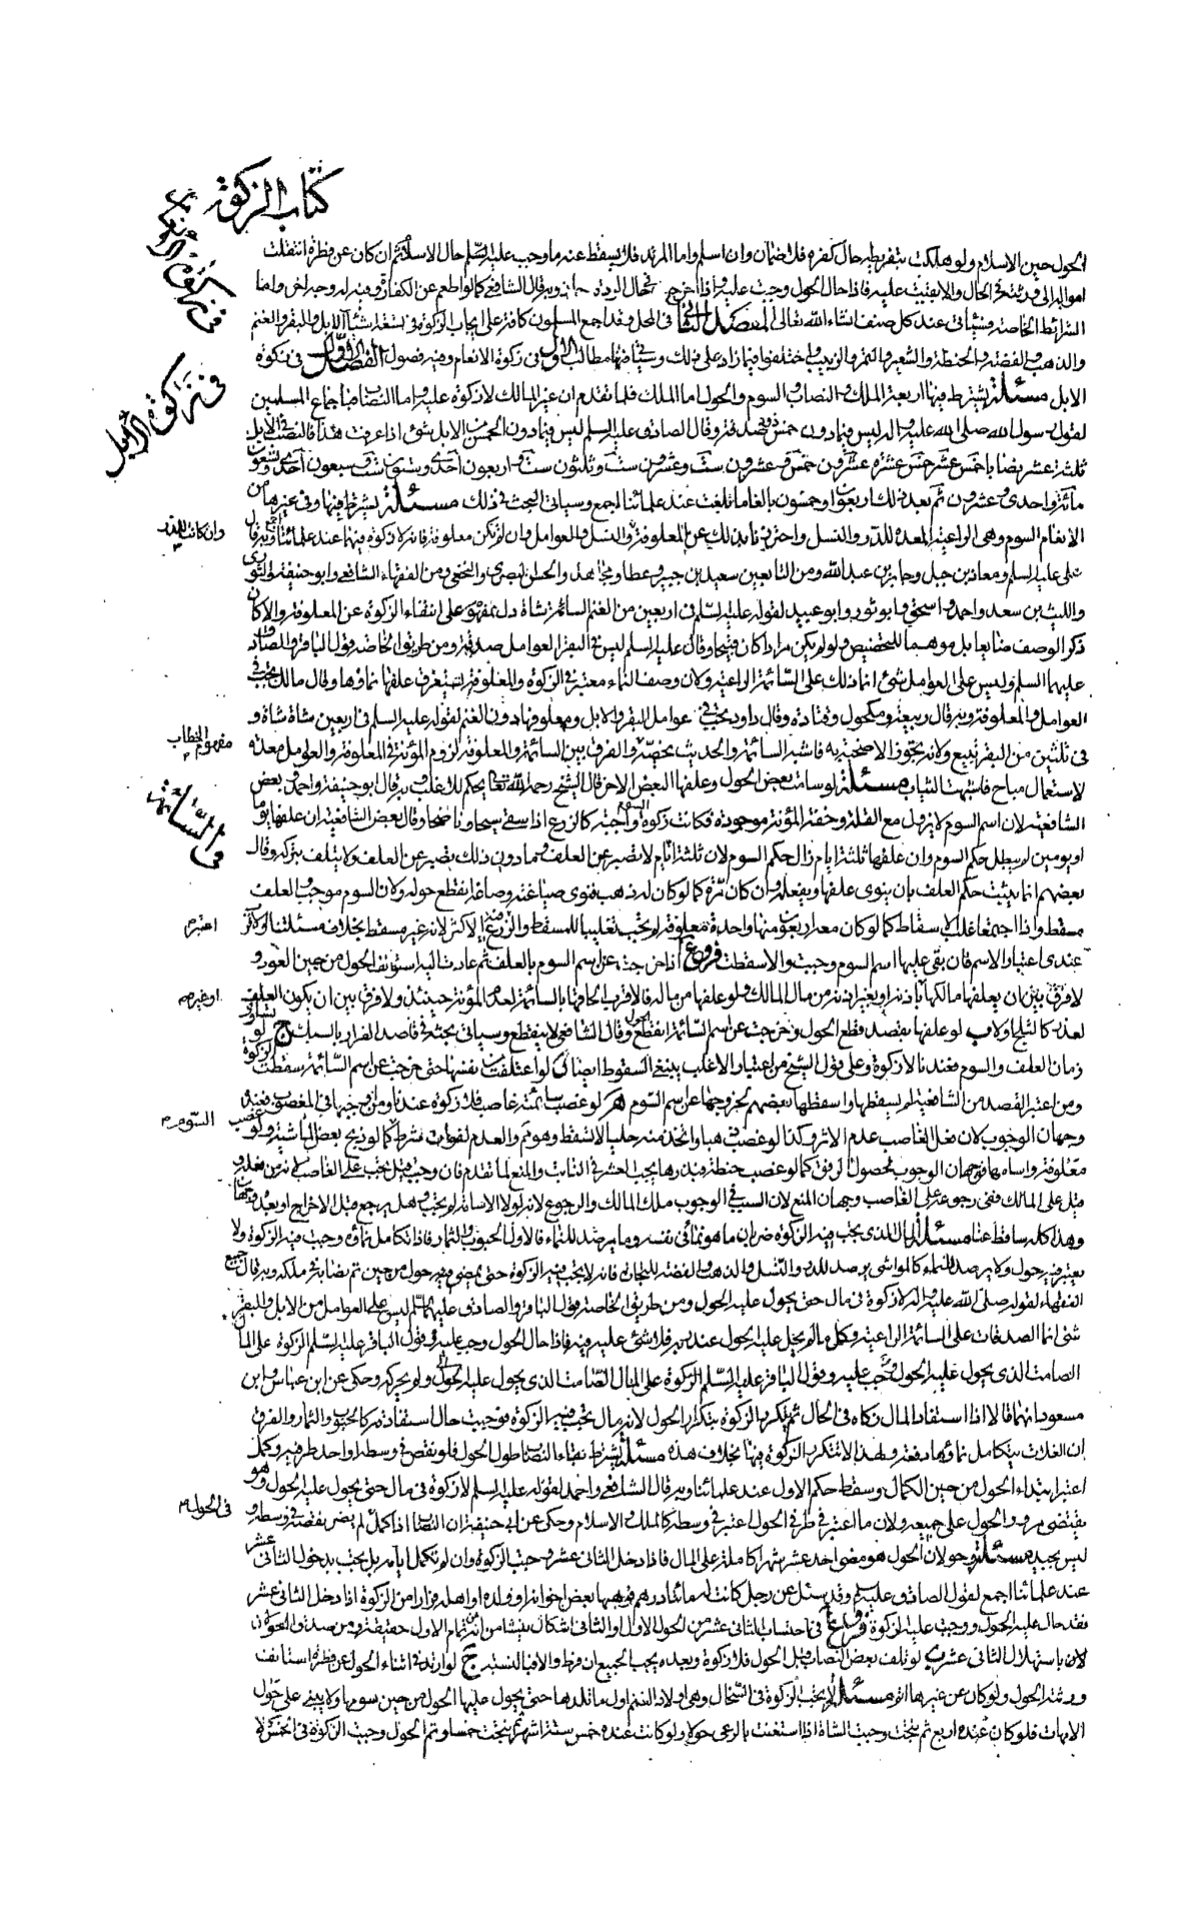 كتاب الزكوة
في زكوة الانعام
في زكوة الابل
الحول حين الاسلام ولو هلكت بتفريطه حال كفره فلا ضمان وان اسلم واما المرتد فلا يسقط عنه ما وجب عليه حال الاسلام ثم ان كان عن فطرة انتقلت
امواله الى ورثته في الحال والا بقيت عليه فاذا حال الحول وجبت عليه واذا اخرج في حال الردة جاز وبه قال الشافعي كما لو اطعم عن الكفارة وفيه له وجه اخر واما
الشرائط الخاصة فستأتي عند كل صنف انشاء الله تعالى المقصد الثاني في المحل وقد اجمع المسلمون كافة على ايجاب الزكوة في تسعة اشياء الابل والبقر والغنم
والذهب والفضة والحنطة والشعير والتمر والزبيب واختلفوا فيما زاد على ذلك وسيأتي فهنا مطالب الاول في زكوة الانعام وفيه فصول الفصل الاول في زكوة
الابل مسئلة يشترط فيها اربعة الملك والنصاب والسوم والحول اما الملك فلما تقدم ان غير المالك لا زكوة عليه واما النصاب فباجماع المسلمين
لقول رسول الله صلى الله عليه واله ليس فيما دون خمس ذود صدقة وقال الصادق عليه السلم ليس فيما دون الخمس من الابل شئ اذا عرفت هذا فالنصب في الابل
ثلثة عشر نصابا خمس عشر خمس عشرة عشرون خمس وعشرون ست وعشرون ست وثلثون ست واربعون احدى وستون ست وسبعون احدى وتسعون
مائة واحدى وعشرون ثم بعد ذلك اربعون او خمسون بالغا ما بلغت عند علمائنا اجمع وسياتي البحث في ذلك مسئلة يشترط فيها وفي غيرها من
الانعام السوم وهي الراعية المعدة للدر والنسل واحترزنا بذلك عن المعلوفة وان كانت للدر والنسل والعوامل وان لم تكن معلوفة فانه لا زكوة فيهما عند علمائنا اجمع وبه قال
علي عليه السلم ومعاذ بن جبل وجابر بن عبد الله ومن التابعين سعيد بن جبير وعطا ومجاهد والحسن البصري والنخعي ومن الفقهاء الشافعي وابو حنيفة والثوري
والليث بن سعد واحمد واسحق وابو ثور وابو عبيد لقوله عليه السلم في اربعين من الغنم السائمة شاة دل بمفهومه على انتفاء الزكوة عن المعلوفة والا كان
ذكر الوصف ضايعا بل موهما للتخصيص ولو لم يكن مرادا كان قبيحا وقال عليه السلم ليس في البقر العوامل صدقة ومن طريق الخاصة قول الباقر والصادق
عليهما السلم وليس على العوامل شئ انما ذلك على السائمة الراعية ولان وصف النماء معتبر في الزكوة والمعلوفة يستغرق علفها نماؤها وقال مالك تجب في
العوامل والمعلوفة وبه قال ربيعة ومكحول وقتادة وقال داود تجب في عوامل البقر والابل ومعلوفها دون الغنم لقوله عليه السلم في اربعين شاة شاة و
في ثلثين من البقر تبيع ولانه يجوز الاضحية به فاشبه السائمة والحديث نخصه مفهوم الخطاب والفرق بين السائمة والمعلوفة لزوم المؤنة في المعلوفة والعوامل معدة
لاستعمال مباح فاشبهت الثياب مسئلة لو سامت بعض الحول وعلفها البعض الاخر قال الشيخ رحمه الله تعالى يحكم للاغلب وبه قال ابو حنيفة واحمد وبعض
في السائمة
الشافعية لان اسم السوم لا يزول مع القلة وخفة المؤنة موجودة فكانت زكوة السوم واجبة كالزرع اذا سقي سيحا وناضحا وقال بعض الشافعية ان علفها يوما
او يومين لم يبطل حكم السوم وان علفها ثلثة ايام زال حكم السوم لان ثلثة ايام لا تصبر عن العلف وما دون ذلك تصبر عن العلف ولا يتلف بتركه وقال
بعضهم انما يثبت حكم العلف بان ينوي علفها ويفعله وان كان مرة كما لو كان له ذهب فنوى صياغته وصاغه انقطع حوله ولان السوم موجب والعلف
مسقط واذا اجتمعا غلب الاسقاط كما لو كان معه اربعون منها واحدة معلوفة لم تجب تغليبا للمسقط والزرع اعتبر فيه الاكثر لانه غير مسقط بخلاف مسئلتنا والاقرب
عندي اعتبار الاسم فان بقي عليها اسم السوم وجبت والا سقطت فروع ا اذا خرجت عن اسم السوم بالعلف ثم عادت اليه استونف الحول من حين العود و
لا فرق بين ان يعلفها مالكها او غيره باذنه او بغير اذنه من مال المالك ولو علفها من ماله فالاقرب الحاقها بالسائمة لعدم المؤنة حينئذ ولا فرق بين ان يكون العلف
لعذر كالثلج او لا ب لو علفها بقصد قطع الحول وخرجت عن اسم السائمة انقطع الحول وقال الشافعي لا ينقطع وسياتي بحثه في قاصد الفرار بالسبك ج لو تساوى
زمان العلف والسوم فعندنا لا زكوة وعلى قول الشيخ من اعتبار الاغلب ينبغي السقوط ايضا د لو اعتلفت من نفسها حتى خرجت عن اسم السائمة سقطت الزكوة
ومن اعتبر القصد من الشافعية لم يسقطها واسقطها بعضهم لخروجها عن اسم السوم هـ لو غصب سائمة غاصب فلا زكوة عندنا ومن اوجبها في المغصوب فعنده
وجهان الوجوب لان فعل الغاصب عديم الاثر وكذا لو غصب ذهبا واتخذ منه حليا لا تسقط وهو ثم والعدم لفوات شرط السوم كما لو ذبح بعض الماشية ولو غصب
معلوفة واسامها فوجهان الوجوب لحصول الرفق كما لو غصب حنطة وبذرها يجب العشر في النابت والمنع لما تقدم فان وجبت قيل تجب على الغاصب لانه من فعله و
قيل على المالك ففي رجوعه على الغاصب وجهان المنع لان السبب في الوجوب ملك المالك والرجوع لانه لولا الاسامة لم تجب وهل يرجع قبل الاخراج او بعده وجهان
وهذا كله ساقط عنا مسئلة المال الذي تجب فيه الزكوة ضربان ما هو نماء في نفسه وما يرصد للنماء فالاول الحبوب والثمار فاذا تكامل نماؤه وجبت فيه الزكوة ولا
يعتبر فيه حول وما يرصد للنماء كالمواشي يرصد للدر والنسل والذهب والفضة للتجارة فانه لا تجب فيه الزكوة حتى يمضي فيه حول من حين تم نصابه في ملكه وبه قال جميع
الفقهاء لقوله صلى الله عليه واله لا زكوة في مال حتى يحول عليه الحول ومن طريق الخاصة قول الباقر والصادق عليهما السلم ليس على العوامل من الابل والبقر
شئ انما الصدقات على السائمة الراعية وكل ما لم يحل عليه الحول عند ربه فلا شئ عليه فيه فاذا حال الحول وجب عليه وقول الباقر عليه السلم الزكوة على المال
الصامت الذي يحول عليه الحول وجب عليه وقول الباقر عليه السلم الزكوة على المال الصامت الذي يحول عليه الحول ولم يحركه وحكي عن ابن عباس وابن
مسعود انهما قالا اذا استفاد المال زكاه في الحال ثم تتكرر الزكوة بتكرار الحول لانه مال تجب فيه الزكوة فوجبت حال استفادته كالحبوب والثمار والفرق
ان الغلات يتكامل نماؤها دفعة ولهذا لا تتكرر الزكوة فيها بخلاف هذه مسئلة يشترط بقاء النصاب طول الحول فلو نقص في وسطه او احد طرفيه وكمل
اعتبر ابتداء الحول من حين الكمال وسقط حكم الاول عند علمائنا وبه قال الشافعي واحمد لقوله عليه السلم لا زكوة في مال حتى يحول عليه الحول وهو
يقتضي مرور الحول على جميعه ولان ما اعتبر في طرفي الحول اعتبر في وسطه كالملك والاسلام وحكي عن ابي حنيفة ان النصاب اذا كمل في الحول لم يضر نقصه في وسطه و
ليس بجيد مسئلة وحولان الحول هو مضي احد عشر شهرا كاملة على المال فاذا دخل الثاني عشر وجبت الزكوة وان لم تكمل ايامه بل تجب بدخول الثاني عشر
عند علمائنا اجمع لقول الصادق عليه السلم وقد سئل عن رجل كانت له مائتا درهم فوهبها بعض اخوانه او ولده او اهله فرارا من الزكوة اذا دخل الثاني عشر
فقد حال عليه الحول ووجبت عليه الزكوة فروع ا في احتساب الثاني عشر من الحول الاول او الثاني اشكال ينشأ من انه من تمام الاول حقيقة ومن صدق الحولان
لان باستهلال الثاني عشر ب لو تلف بعض النصاب قبل الحول فلا زكوة وبعده يجب الجميع ان فرط والا فبالنسبة ج لو ارتد في اثناء الحول عن فطرة استانف
ورثته الحول ولو كان عن غيرها اتم مسئلة لا تجب الزكوة في السخال وهي اولاد الغنم اول ما تلدها حتى يحول عليها الحول من حين سومها ولا يبنى على حول
الامهات فلو كان عنده اربع ثم نتجت وجبت الشاة اذا استغنت بالرعي حولا ولو كانت عنده خمس ستة اشهر ثم نتجت خمسا وتم الحول وجبت الزكوة في الخمس لا